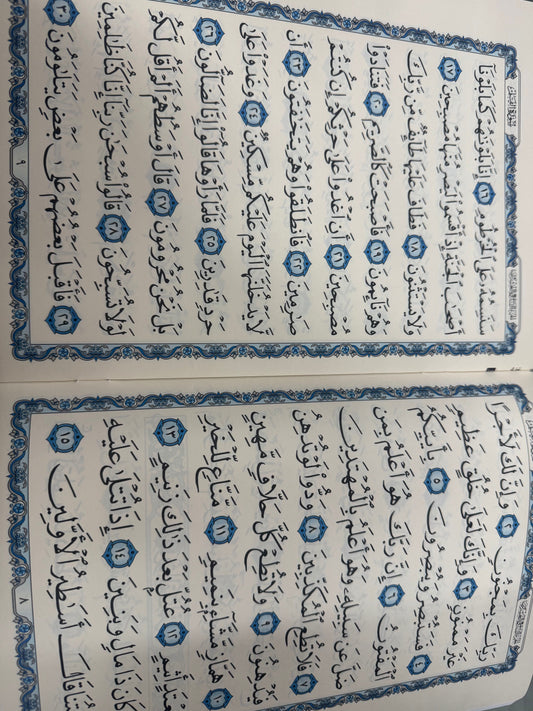 رَبِّكَ بِمَجْنُونٍ ٢ وَإِنَّ لَكَ لَأَجْرًا
غَيْرَ مَمْنُونٍ ٣ وَإِنَّكَ لَعَلَىٰ خُلُقٍ عَظِيمٍ
٤ فَسَتُبْصِرُ وَيُبْصِرُونَ ٥ بِأَييِّكُمُ
ٱلْمَفْتُونُ ٦ إِنَّ رَبَّكَ هُوَ أَعْلَمُ بِمَن
ضَلَّ عَن سَبِيلِهِۦ وَهُوَ أَعْلَمُ بِٱلْمُهْتَدِينَ
٧ فَلَا تُطِعِ ٱلْمُكَذِّبِينَ ٨ وَدُّوا۟ لَوْ تُدْهِنُ
فَيُدْهِنُونَ ٩ وَلَا تُطِعْ كُلَّ حَلَّافٍ مَّهِينٍ
١٠ هَمَّازٍ مَّشَّآءٍۭ بِنَمِيمٍ ١١ مَّنَّاعٍ لِّلْخَيْرِ
مُعْتَدٍ أَثِيمٍ ١٢ عُتُلٍّۭ بَعْدَ ذَٰلِكَ زَنِيمٍ ١٣
كَانَ ذَا مَالٍ وَبَنِينَ ١٤ إِذَا تُتْلَىٰ عَلَيْهِ
قَالَ أَسَٰطِيرُ ٱلْأَوَّلِينَ ١٥
٨
سُورَةُ القَلَمِ
سَنَسِمُهُۥ عَلَى ٱلْخُرْطُومِ ١٦ إِنَّا بَلَوْنَٰهُمْ كَمَا بَلَوْنَآ
أَصْحَٰبَ ٱلْجَنَّةِ إِذْ أَقْسَمُوا۟ لَيَصْرِمُنَّهَا مُصْبِحِينَ ١٧
وَلَا يَسْتَثْنُونَ ١٨ فَطَافَ عَلَيْهَا طَآئِفٌ مِّن رَّبِّكَ
وَهُمْ نَآئِمُونَ ١٩ فَأَصْبَحَتْ كَٱلصَّرِيمِ ٢٠ فَتَنَادَوْا۟
مُصْبِحِينَ ٢١ أَنِ ٱغْدُوا۟ عَلَىٰ حَرْثِكُمْ إِن كُنتُمْ
صَٰرِمِينَ ٢٢ فَٱنطَلَقُوا۟ وَهُمْ يَتَخَٰفَتُونَ ٢٣ أَن
لَّا يَدْخُلَنَّهَا ٱلْيَوْمَ عَلَيْكُم مِّسْكِينٌ ٢٤ وَغَدَوْا۟ عَلَىٰ
حَرْدٍ قَٰدِرِينَ ٢٥ فَلَمَّا رَأَوْهَا قَالُوٓا۟ إِنَّا لَضَآلُّونَ ٢٦
بَلْ نَحْنُ مَحْرُومُونَ ٢٧ قَالَ أَوْسَطُهُمْ أَلَمْ أَقُل لَّكُمْ
لَوْلَا تُسَبِّحُونَ ٢٨ قَالُوا۟ سُبْحَٰنَ رَبِّنَآ إِنَّا كُنَّا ظَٰلِمِينَ
٢٩ فَأَقْبَلَ بَعْضُهُمْ عَلَىٰ بَعْضٍ يَتَلَٰوَمُونَ ٣٠
٩